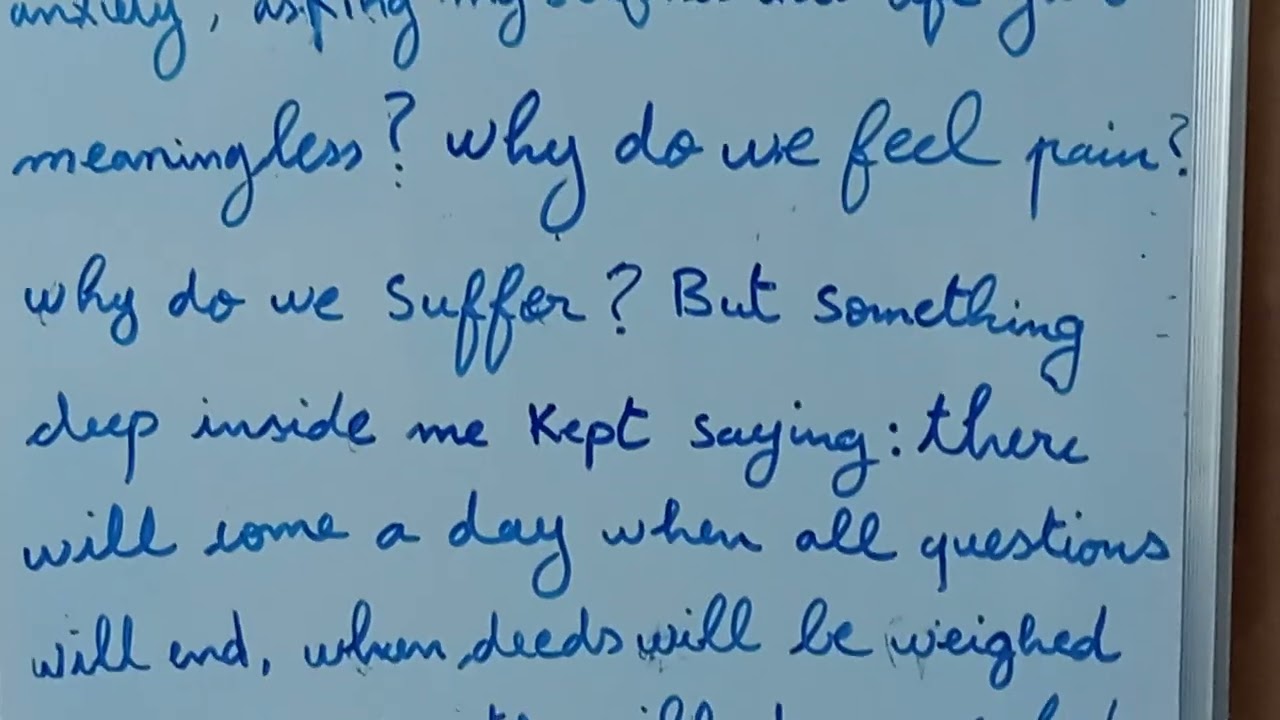 anxiety, asking my
meaningless? why do we feel pain?
why do we suffer? But something
deep inside me kept saying: there
will come a day when all questions
will end, when deeds will be weighed